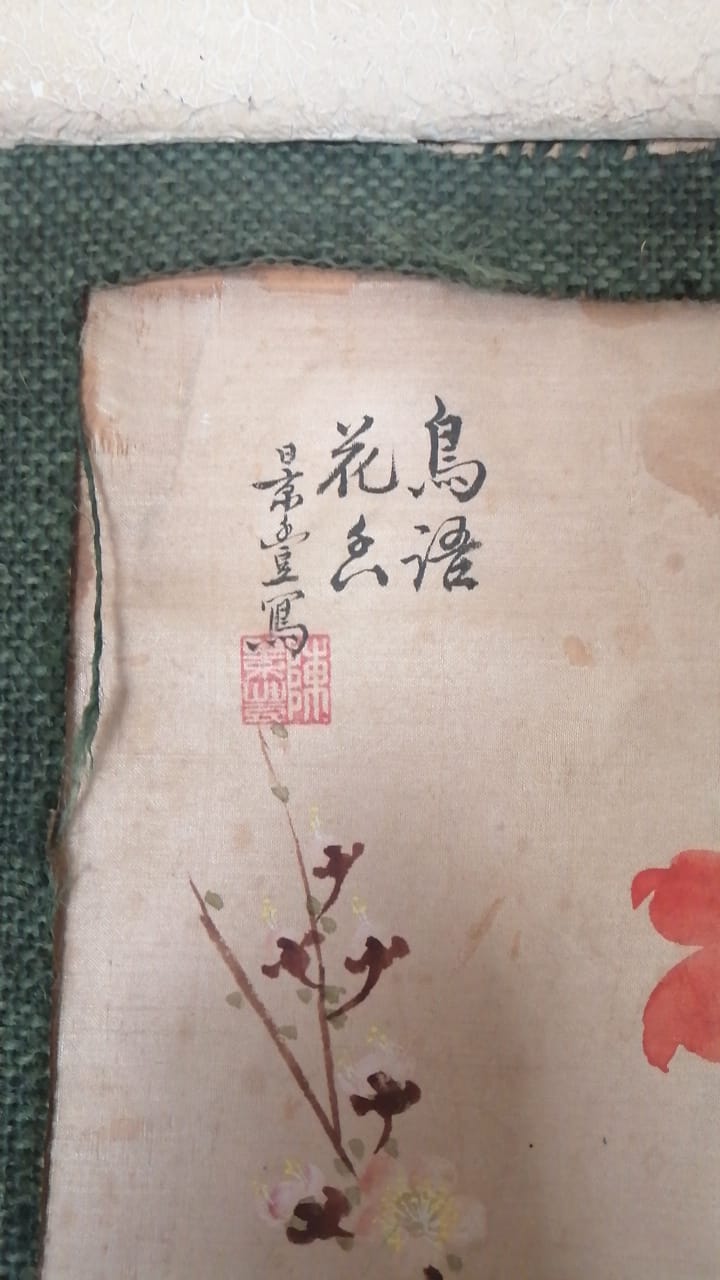 鳥語
花香
景豐寫
陳
景豐